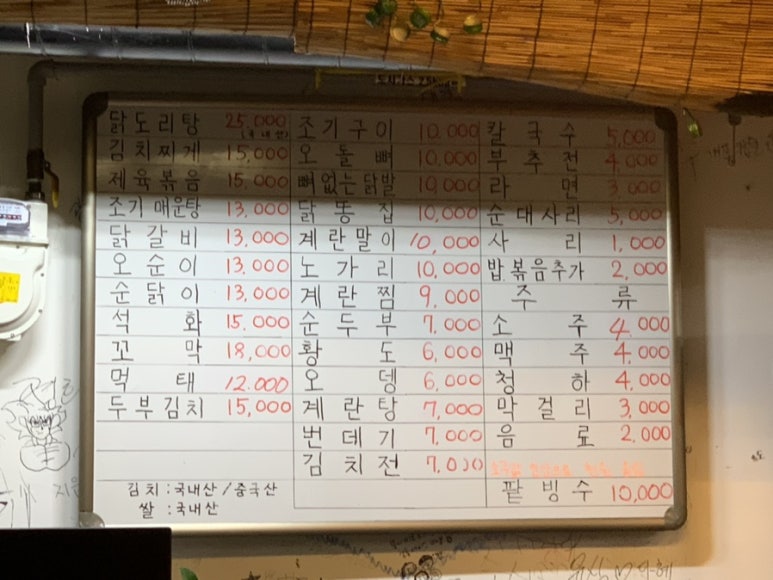 닭도리탕 25,000
(국내산)
김치찌게 15,000
제육볶음 15,000
조기매운탕 13,000
닭갈비 13,000
오순이 13,000
순닭이 13,000
석화 15.000
꼬막 18,000
먹태 12.000
두부김치 15,000
김치:국내산/중국산
쌀:국내산
조기구이 10,000
오돌뼈 10,000
뼈없는닭발 10,000
닭똥집 10,000
계란말이 10,000
노가리 10,000
계란찜 9,000
순두부 7,000
황도 6,000
오뎅 6,000
계란탕 7,000
번데기 7,000
김치전 7.000
칼국수 5,000
부추전 4,000
라면 3,000
순대사리 5,000
사리 1,000
밥.볶음추가 2,000
주류
소주 4,000
맥주 4,000
청하 4,000
막걸리 3,000
음료 2,000
팥빙수 10,000